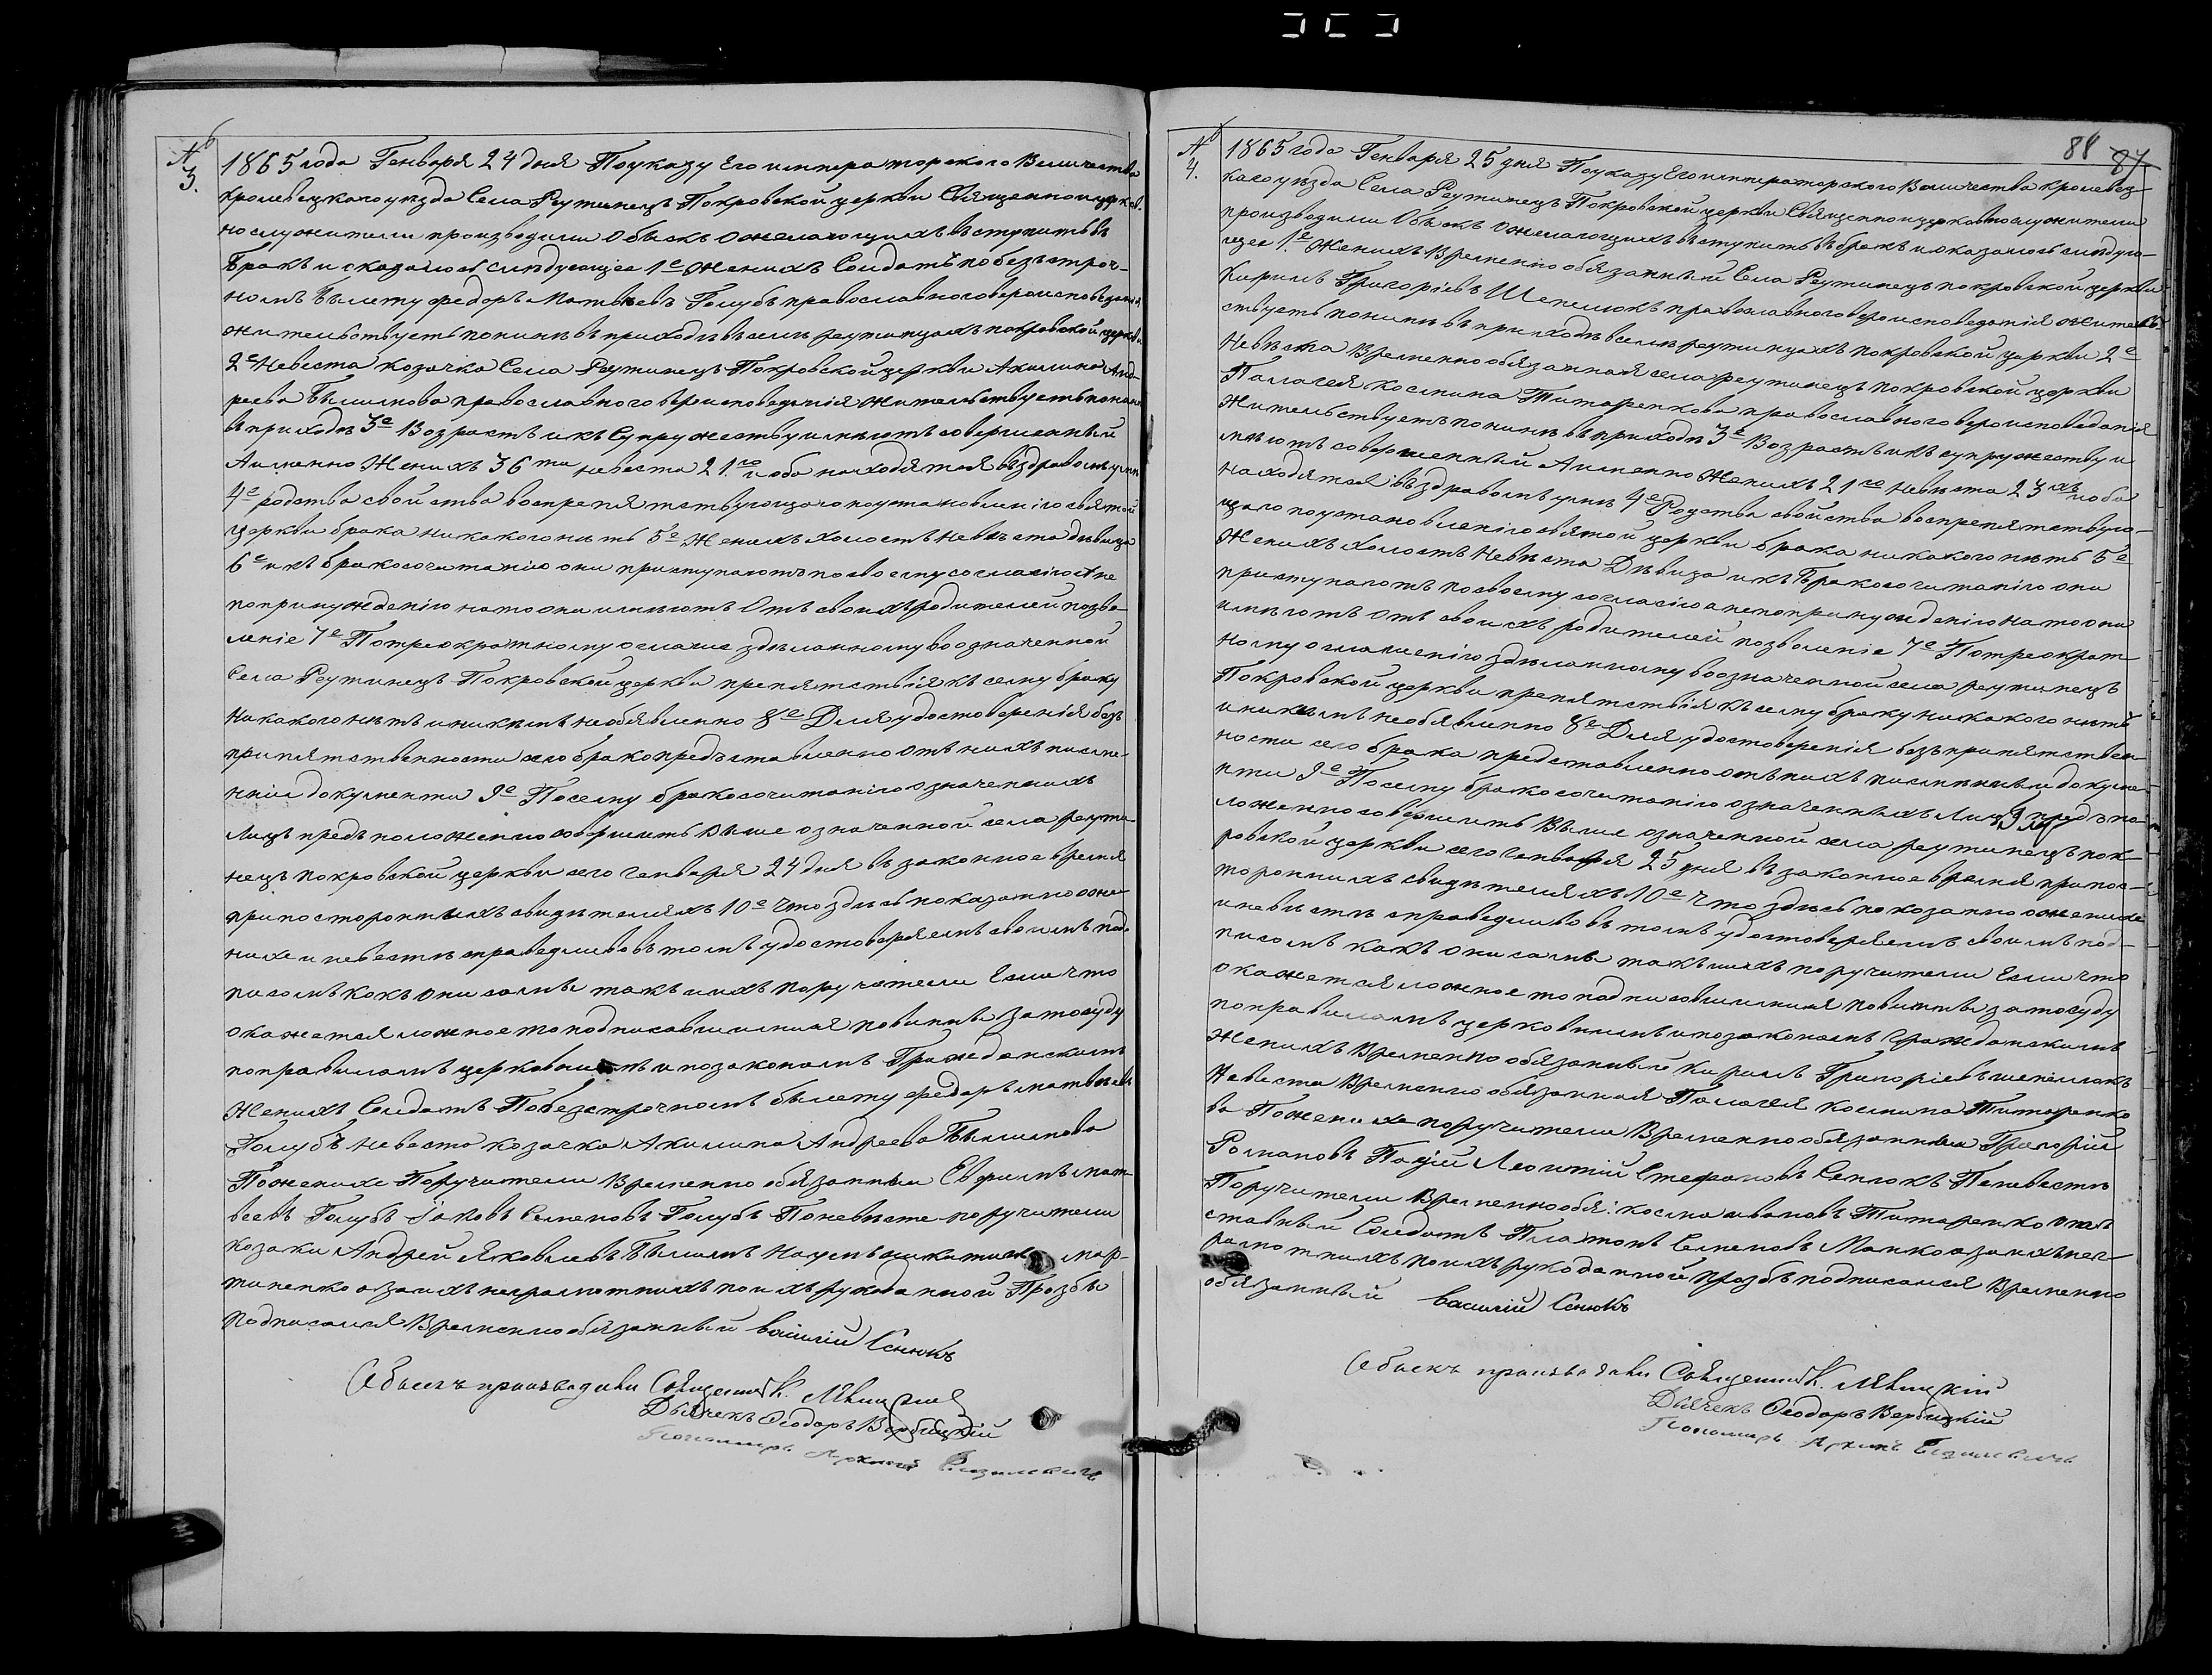 № 3.
1865 года Генваря 24 дня По указу Его императорского Величества
Кролевецкаго уезда Села Реутинецъ Покровской церкви Священно и церков-
но служители производили Обыскъ о желающихъ вступить въ
Бракъ и оказалось следующее 1е Женихъ Солдатъ по безъсроч-
номъ билету федоръ Матвеевъ Голубъ православного вероисповедания
жительствуетъ понине въ приходе въ селе реутинцахъ покровской церкви
2е Невеста козачка Села Реутинецъ Покровской церкви Акилина Анд-
реева Былимова православного вероисповеданія жительствуетъ понине
въ приходе 3е Возрастъ и къ Супружеству имеютъ совершенный
А именно Женихъ 36ти невеста 21го и оба находятся въ здравомъ уме
4е родства свойства воспрепятствующаго по установленію святой
Церкви брака никакого нетъ 5е Женихъ холостъ Невеста девица
6е и къ бракосочитанію они приступаютъ по своему согласію А не
по принуждению на то они имеютъ Отъ своихъ родителей позво-
леніе 7е По треократному огласие зделанному во означенной
Села Реутинецъ Покровской церкви препятствія къ сему браку
Никакого нетъ и никемъ не обявленно 8е Для удостоверенія безъ
припятственности сего брака предъставленно отъ нихъ письме-
нніи документи 9е По сему бракосочитанію означенныхъ
Лицъ предъположенно совершить выше означенной села реути-
нецъ покровской церкви сего генваря 24 дня въ законное время
при посторонныхъ свидетеляхъ 10е Что здесь показанно о же-
нихе и невесте справедливо въ томъ удостоверяемъ своимъ под-
писомъ какъ они самы такъ и ихъ поручители Если что
окажется ложное то подписавшиися повинны за то суду
по правиламъ церковнымъ и по законамъ Гражданскимъ
Женихъ Солдатъ По безстрочномъ билету федоръ матвеевъ
Голубъ невеста козачка Акилина Андреева Былимова
По женихе Поручители Временно обязанныи Ефимъ мат-
веевъ Голубъ Іаковъ Семеновъ Голубъ По невесте поручители
козаки Андрей Яковлевъ Былимъ Наумъ никитинъ мар-
тиненко а за ихъ неграмотныхъ по ихъ рукоданной Прозбы
подписался Временно обязанный василій Сенюкъ
Обыскъ производили Священникъ К. Левицкий
Дьячекъ Ѳеодоръ Вербицкій
Пономарь Архипъ
88 87
№ 4.
1865 года Генваря 25 дня По указу Его императорского Величества кролевец-
каго уезда Села Реутинецъ Покровской церкви Священно и церковно служители
производили Обыскъ о желающихъ вступить въ бракъ и оказалось следую-
щее 1е Женихъ Временно обязанный Села Реутинецъ покровской церкви
Кирилъ Григоріевъ Шепелюкъ православного вероисповеданія жителъ
ствуетъ понине въ приходе въ селе реутинцахъ покровской церкви 2е
Невеста Временно обязанная села реутинецъ покровской церкви
Палагея космина Титаренкова православного вероисповеданія
Жительствуетъ понине въ приходе 3е Возрастъ и къ супружеству и
меютъ совершенный А именно Женихъ 21го Невеста 23хъ и оба
находятся въ здравомъ уме 4е Родства свойства воспрепятствую-
щаго по установленію святой церкви брака никакого нетъ 5е
Женихъ холостъ Невеста Девица и къ Бракосочитанію они
приступаютъ по своему согласію а не по принужденію на то они
имеютъ отъ своихъ родителей позволеніе 7е По треократ-
ному оглашенію зделанному во означенной села реутинецъ
Покровской церкви препятствія къ сему браку никакого нетъ
и никемъ не обявленно 8е Для удостоверенія безъ припятствен-
ности сего брака представленно отъ нихъ писменныи докуме-
нти 9е По сему бракосочитанію означенныхъ Лицъ предъпо-
ложенно совершить Выше означенной села реутинецъ пок-
ровской церкви сего генваря 25 дня въ законное время при пос-
торонныхъ свидетеляхъ 10е Что здесь показанно о женихе
и невесте справедливо въ томъ удостоверяемъ своимъ под-
писомъ какъ они самы такъ и ихъ поручители Если что
окажется ложное то подписавшиися повинны за то суду
по правиламъ церковнымъ и по законамъ Гражданскимъ
Женихъ Временно обязанный Кирилъ Григоріевъ шепелюкъ
Невеста Временно обязанная Палагея космина Титаренко
ва По женихе поручители Временно обязанныи Григорій
Романовъ Леонтій Стефановъ Сенюкъ По невесте
Поручители Временно обя: косма ивановъ Титаренко отъ
ставный Солдатъ Платонъ Семеновъ Манко а за ихъ нег-
рамотныхъ по ихъ рукоданной прозбе подписался Временно
обязанный василій Сенюкъ
Обыскъ производили Священникъ К. Левицкій
Дьячекъ Ѳеодоръ Вербицкій
Пономарь Архипъ